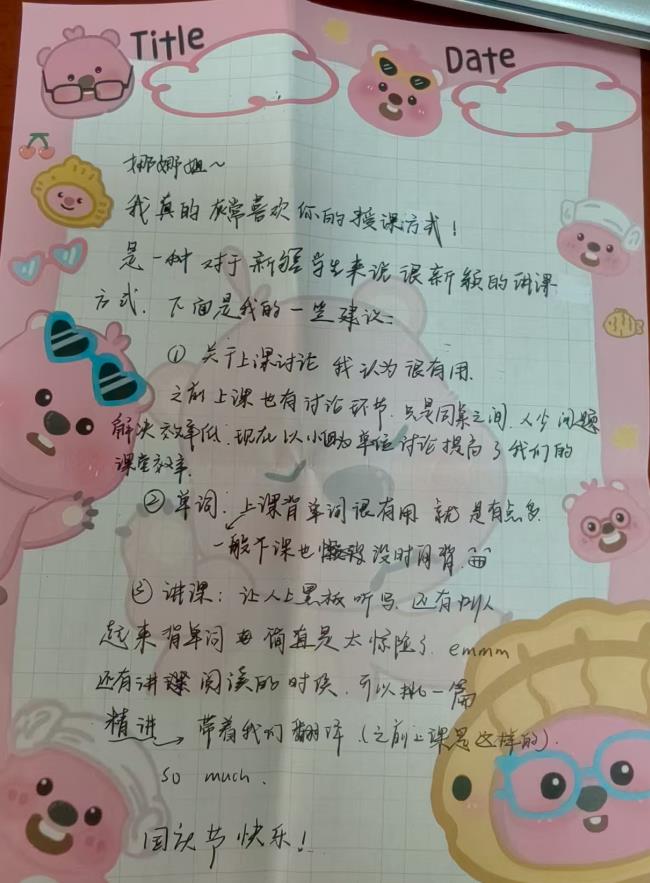 Title
Date
娜娜姐~
我真的非常喜欢你的授课方式！
是一种对于新疆学生来说很新颖的讲课
方式. 下面是我的一些建议：
① 关于上课讨论 我认为很有用.
之前上课也有讨论环节. 只是同桌之间. 人少 问题
解决效率低. 现在以小组为单位讨论提高了我们的
课堂效率.
② 单词：上课背单词很有用 就是有点多.
一般下课也 没时间背.
③ 讲课：让人上黑板听写. 还有叫人
起来背单词 简直是太惊险了. emmm
还有讲课 阅读的时候. 可以挑一篇
精讲 → 带着我们翻译（之前上课是这样的）.
so much.
国庆节快乐！